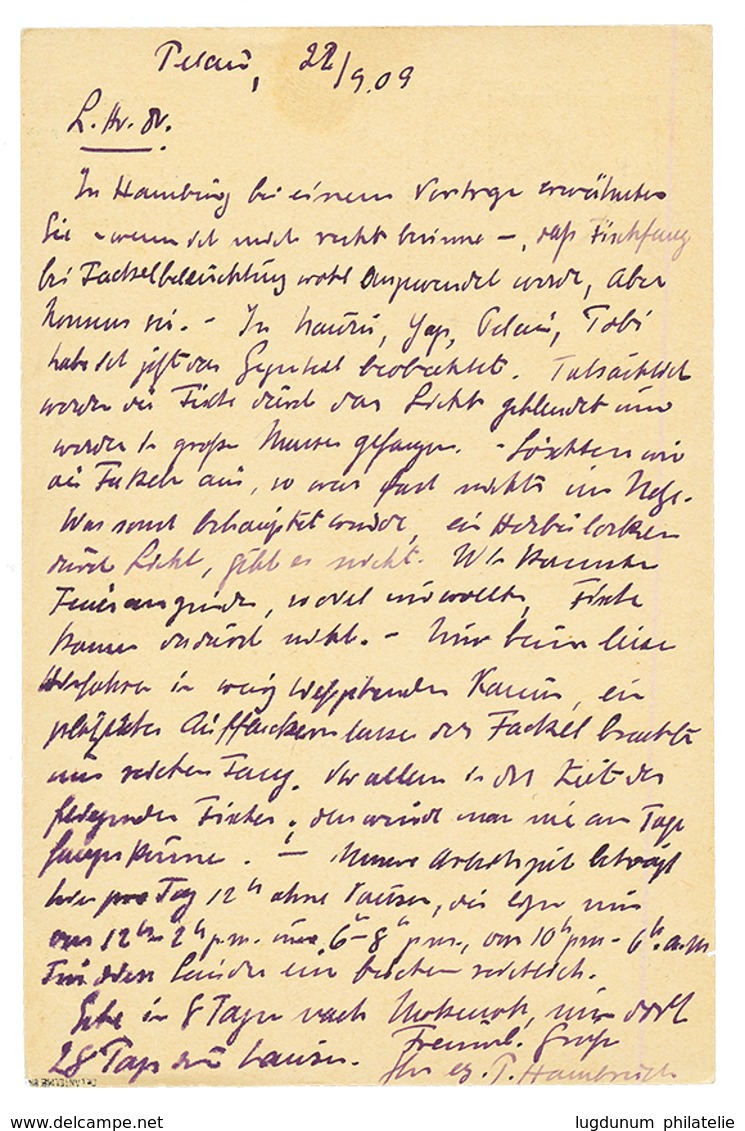 Pelau, 22/9.09
L. Hr. Dr.
In Hamburg bei einem Vortrage erwähnten
Sie – wenn ich mich recht besinne –, daß Fischfang
bei Fackelbeleuchtung wohl angewendet werde, aber
In Nauru, Yap, Pelau, Tobi
habe ich jetzt das Gegenteil beobachtet. Tatsächlich
werden die Fische durch das Licht geblendet und
werden in großen Massen gefangen. – Löschten wir
die Fackeln aus, so war fast nichts im Netze.
Was sonst behauptet wurde, ein Herbeilocken
durch Licht, gibt es nicht. Wir konnten
Feuer anzünden, soviel wir wollten, Fische
kamen dadurch nicht. – Nur beim leisen
in Kanu, ein
plötzliches Aufflackernlassen der Fackel brachte
uns reichen Fang. Vor allem in der Zeit der
fliegenden Fische; den würde man nie am Tage
fangen können. – Unsere Arbeitszeit beträgt
hier pro Tag 12 h ohne Pausen, die legen wir
von 12 h – 2 h p.m. und 6 – 8 h p.m., von 10 h pm – 6 h a.m
Für diese Länder ein bischen reichlich.
Gehe in 8 Tagen nach um dort
28 Tage zu hausen. Freundl. Gruß
Ihr erg. P. Hambruch
lugdunum philatelie